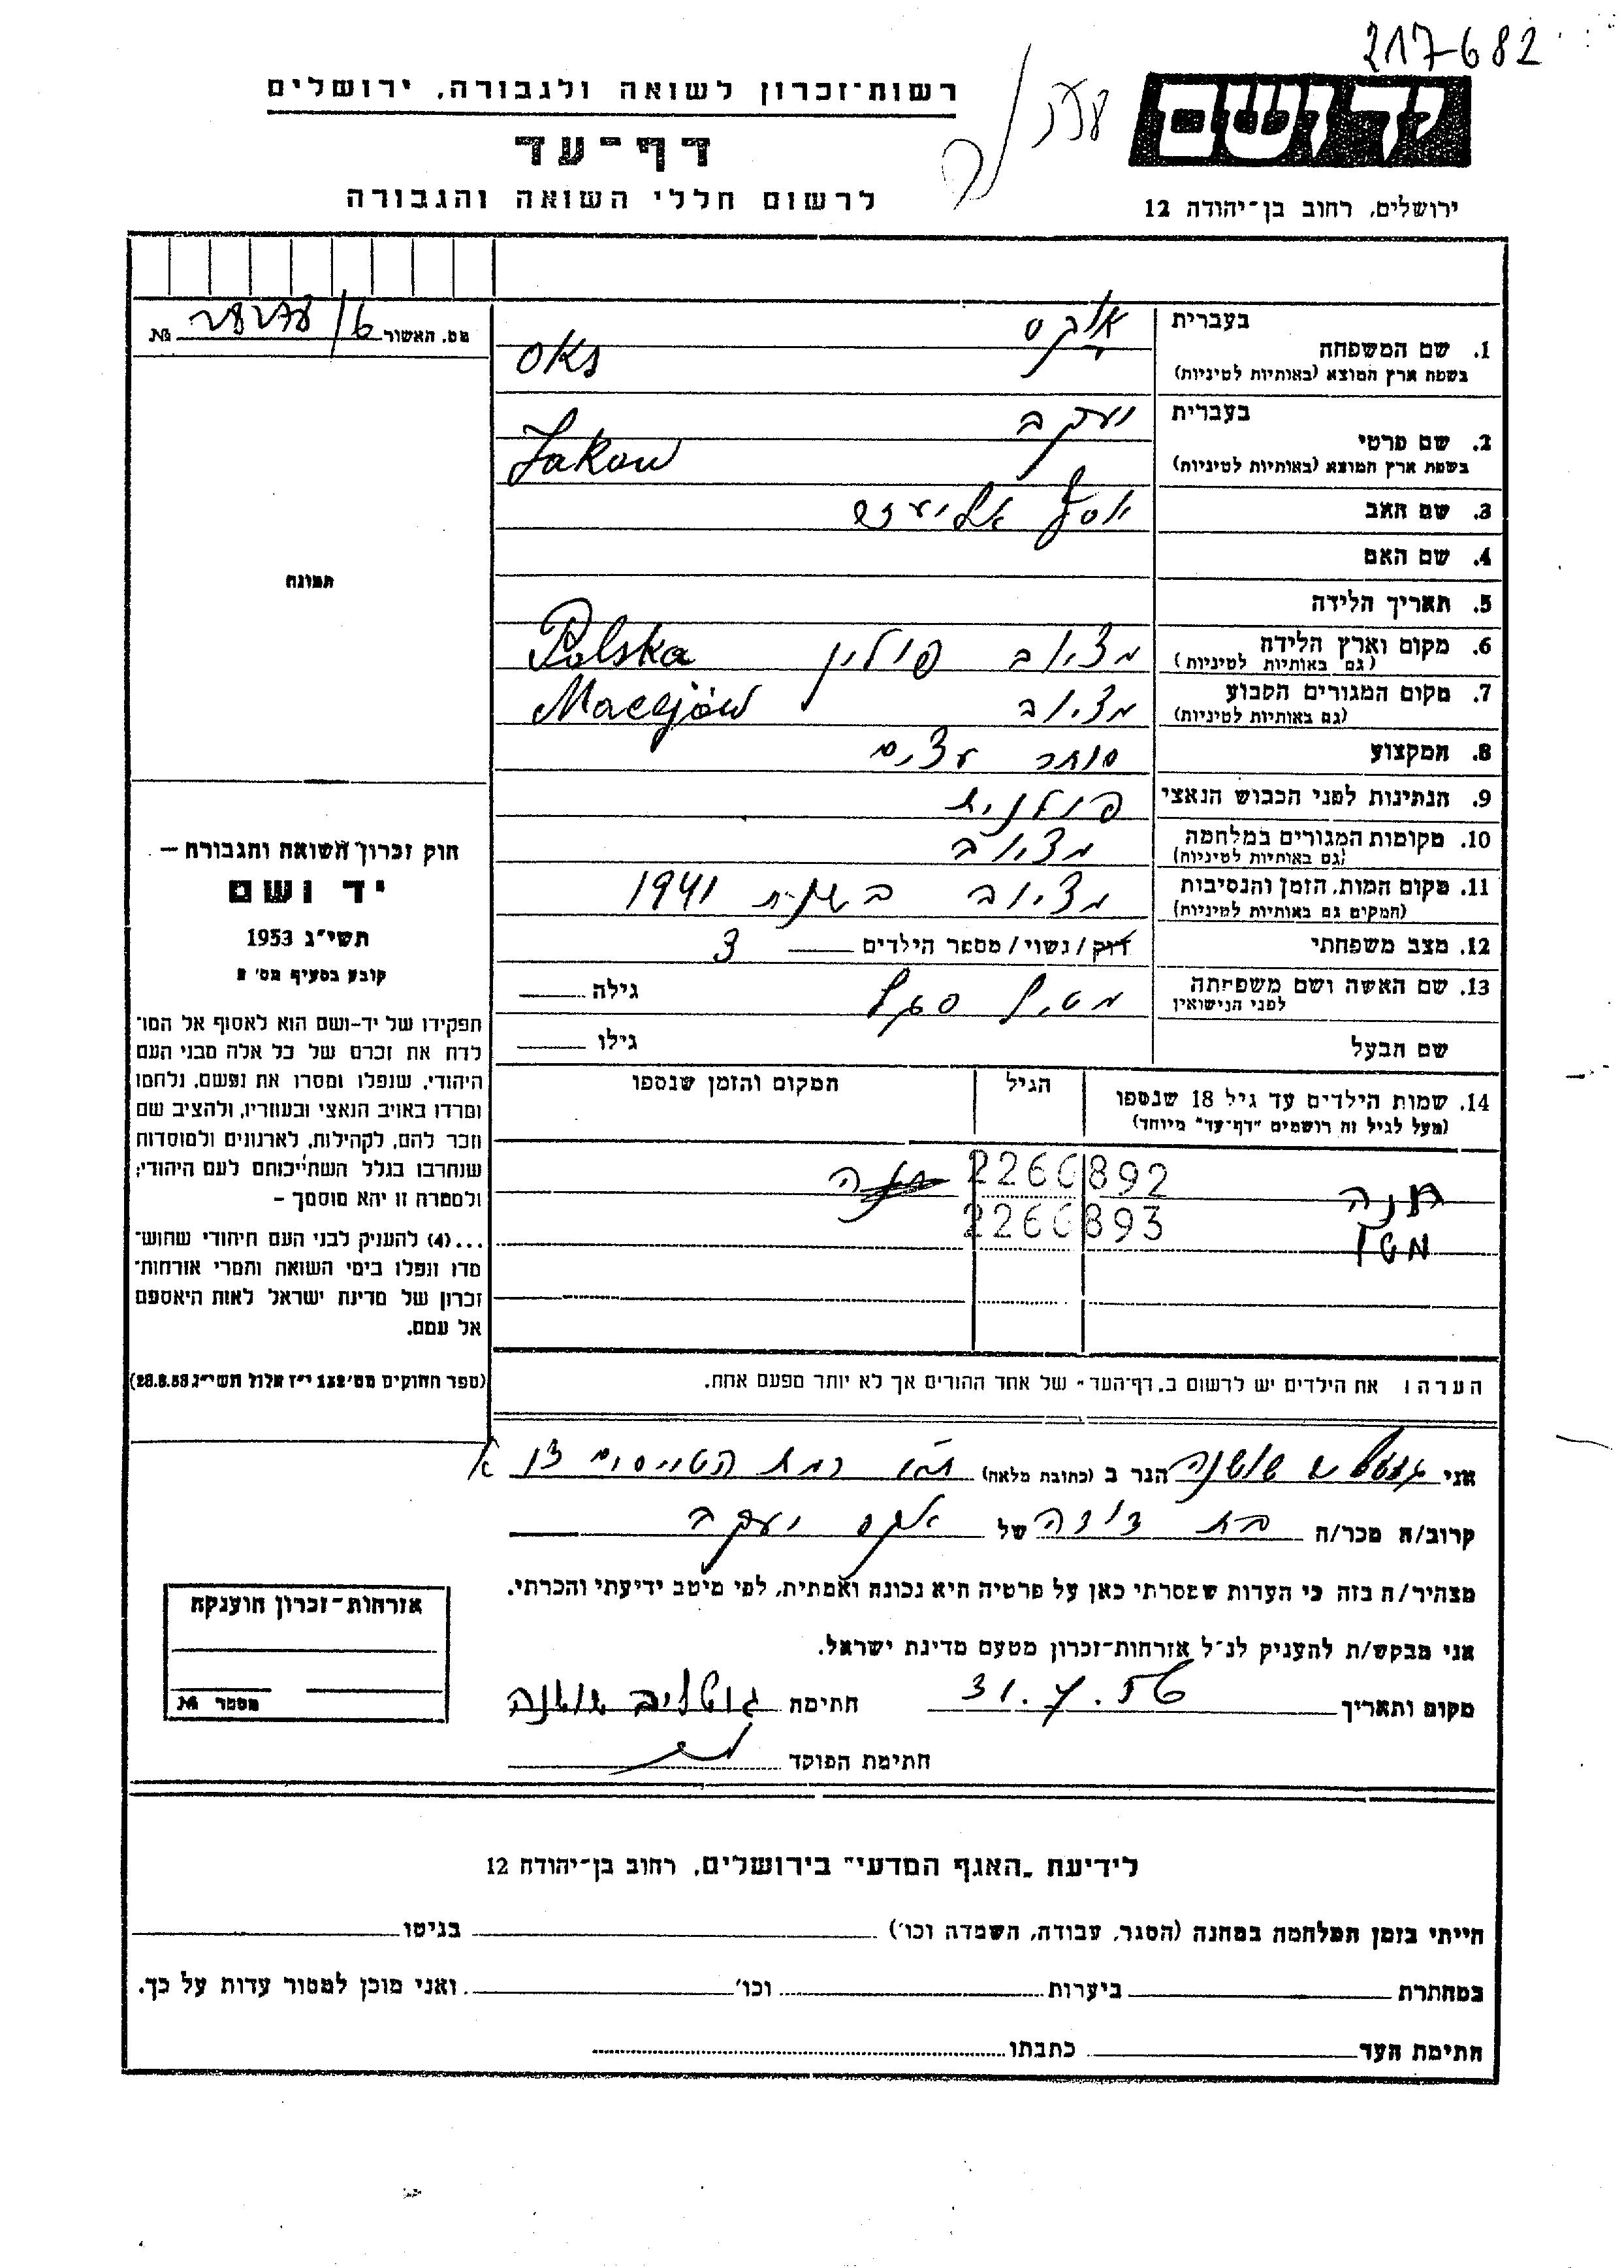 217682
רשות־זכרון לשואה ולגבורה, ירושלים
דף־עד
לרשום חללי השואה והגבורה
יד ושם
ירושלים, רחוב בן־יהודה 12
מס. האשור №
1. שם המשפחה
בעברית
בשפת ארץ המוצא (באותיות לטיניות)
Oks
2. שם פרטי
בעברית יעקב
בשפת ארץ המוצא (באותיות לטיניות) Jakow
3. שם האב יוסף אליעזר
4. שם האם
5. תאריך הלידה
6. מקום וארץ הלידה
(גם באותיות לטיניות) מציוב פולין Polska
7. מקום המגורים הקבוע
(גם באותיות לטיניות) מציוב Maciejów
8. המקצוע סוחר עצים
9. הנתינות לפני הכבוש הנאצי פולנית
10. מקומות המגורים במלחמה
(גם באותיות לטיניות) מציוב
11. מקום המות, הזמן והנסיבות
(המקום גם באותיות לטיניות) מציוב בשנת 1941
12. מצב משפחתי רוק/נשוי/מספר הילדים 3
13. שם האשה ושם משפחתה
לפני הנישואין סגל גילה
שם הבעל גילו
14. שמות הילדים עד גיל 18 שנספו
(מעל לגיל זה רושמים "דף־עד" מיוחד)
הגיל
המקום והזמן שנספו
חנה 2266892
2266893
הערה: את הילדים יש לרשום ב„דף־העד" של אחד ההורים אך לא יותר מפעם אחת.
תמונה
חוק זכרון השואה והגבורה —
יד ושם
תשי"ג 1953
קובע בסעיף מס' 2
תפקידו של יד-ושם הוא לאסוף אל המו־
לדת את זכרם של כל אלה מבני העם
היהודי, שנפלו ומסרו את נפשם, נלחמו
ומרדו באויב הנאצי ובעוזריו, ולהציב שם
וזכר להם, לקהילות, לארגונים ולמוסדות
שנחרבו בגלל השתייכותם לעם היהודי;
ולמטרה זו יהא מוסמך —
...(4) להעניק לבני העם היהודי שהוש־
מדו ונפלו בימי השואה והמרי אזרחות־
זכרון של מדינת ישראל לאות היאספם
אל עמם.
(ספר החוקים מס' 132 י"ז אלול תשי"ג 28.8.53)
אני שושנה הגר ב (כתובת מלאה) רמת הטייסים
קרוב/ה מכר/ה בת דודה של אקס יעקב
מצהיר/ה בזה כי העדות שמסרתי כאן על פרטיה היא נכונה ואמתית, לפי מיטב ידיעתי והכרתי.
אני מבקש/ת להעניק לנ"ל אזרחות־זכרון מטעם מדינת ישראל.
מקום ותאריך 31.7.56 חתימה גוטליב שושנה
חתימת הפוקד
אזרחות־זכרון הוענקה
מספר №
לידיעת „האגף המדעי" בירושלים, רחוב בן־יהודה 12
הייתי בזמן המלחמה במחנה (הסגר, עבודה, השמדה וכו') בגיטו
במחתרת ביערות וכו' ואני מוכן למסור עדות על כך.
חתימת העד כתבתו